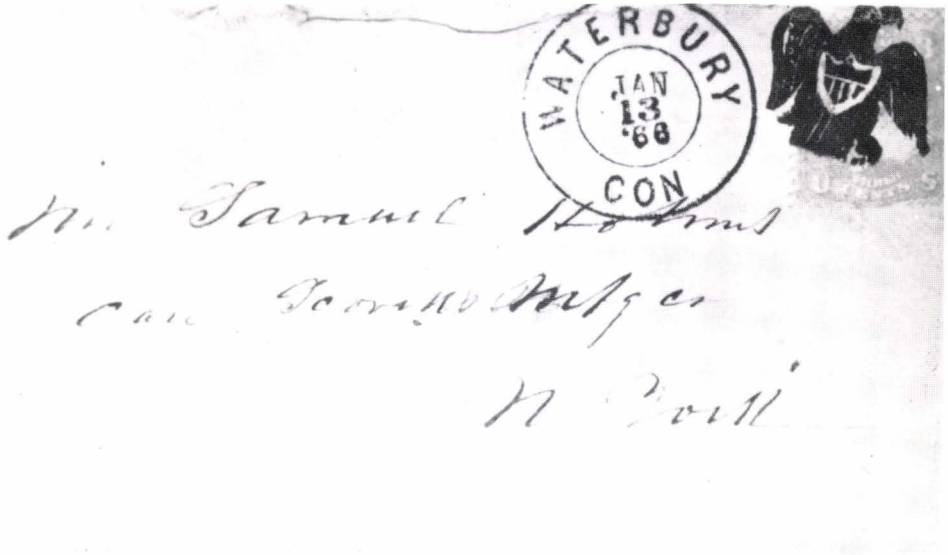 WATERBURY
JAN
13
'66
CON
U S
Mr. Samuel Holmes
Care Scovills Mfg Co
N York